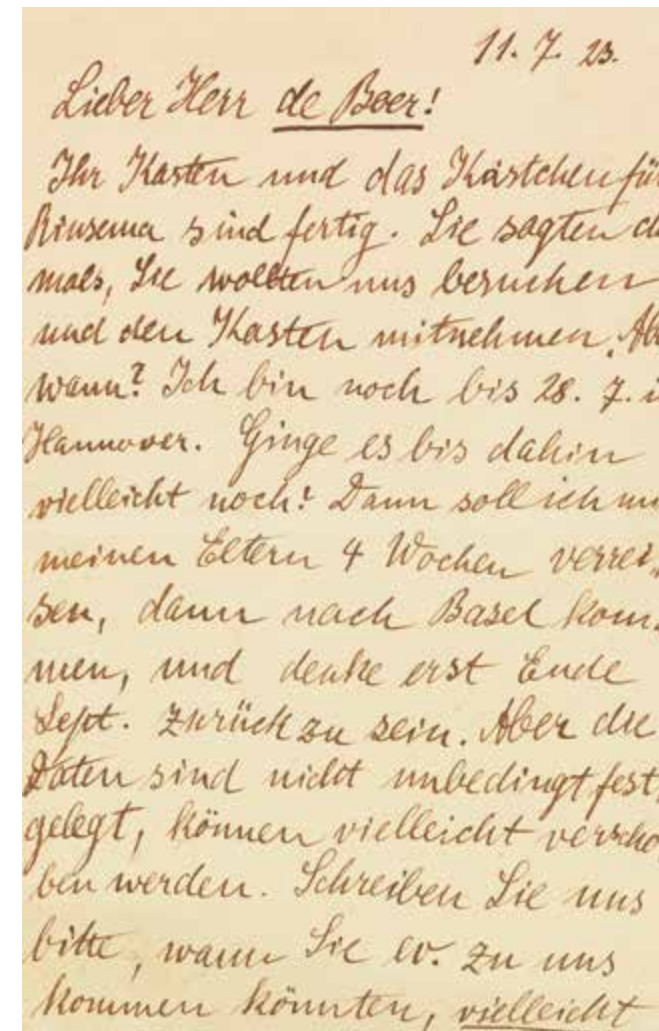 11. 7. 23.
Lieber Herr de Boer!
Ihr Kasten und das Kästchen für
Rinsema sind fertig. Sie sagten da
mals, Sie wollten uns besuchen
und den Kasten mitnehmen. Abe
wann? Ich bin noch bis 28. 7. i
Hannover. Ginge es bis dahin
vielleicht noch? Dann soll ich mi
meinen Eltern 4 Wochen verrei„
sen, dann nach Basel kom„
men, und denke erst Ende
Sept. zurück zu sein. Aber die
Daten sind nicht unbedingt fest„
gelegt, können vielleicht verscho
ben werden. Schreiben Sie uns
bitte, wann Sie ev. zu uns
kommen könnten, vielleicht